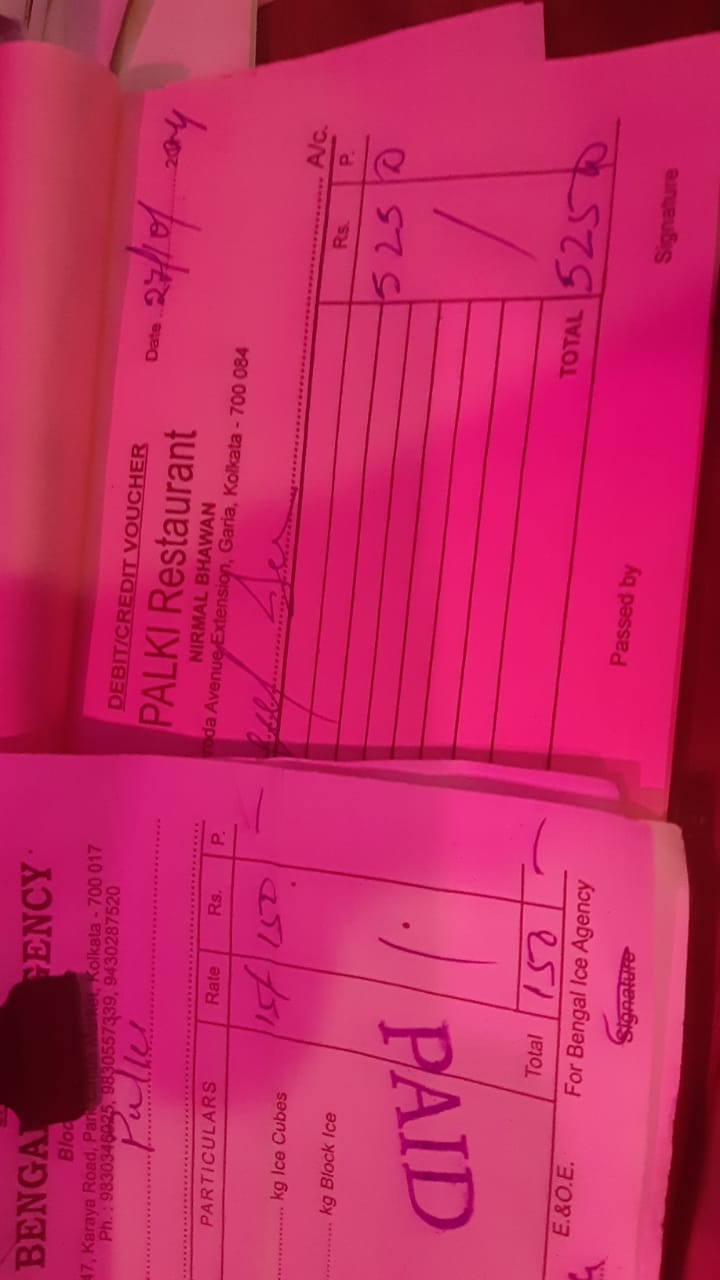 DEBIT/CREDIT VOUCHER
PALKI Restaurant
Date 27/10/ 2024
NIRMAL BHAWAN
roda Avenue Extension, Garia, Kolkata - 700 084
A/c.
Rs. P.
525 0
TOTAL 525 0
Passed by Signature
BENGA GENCY
Bloc
47, Karaya Road, Par Kolkata - 700 017
Ph. : 9830346025, 9830557339, 9430287520
PARTICULARS Rate Rs. P.
kg Ice Cubes 15/ 150 -
kg Block Ice
PAID
Total 150 -
E.&O.E. For Bengal Ice Agency
Signature